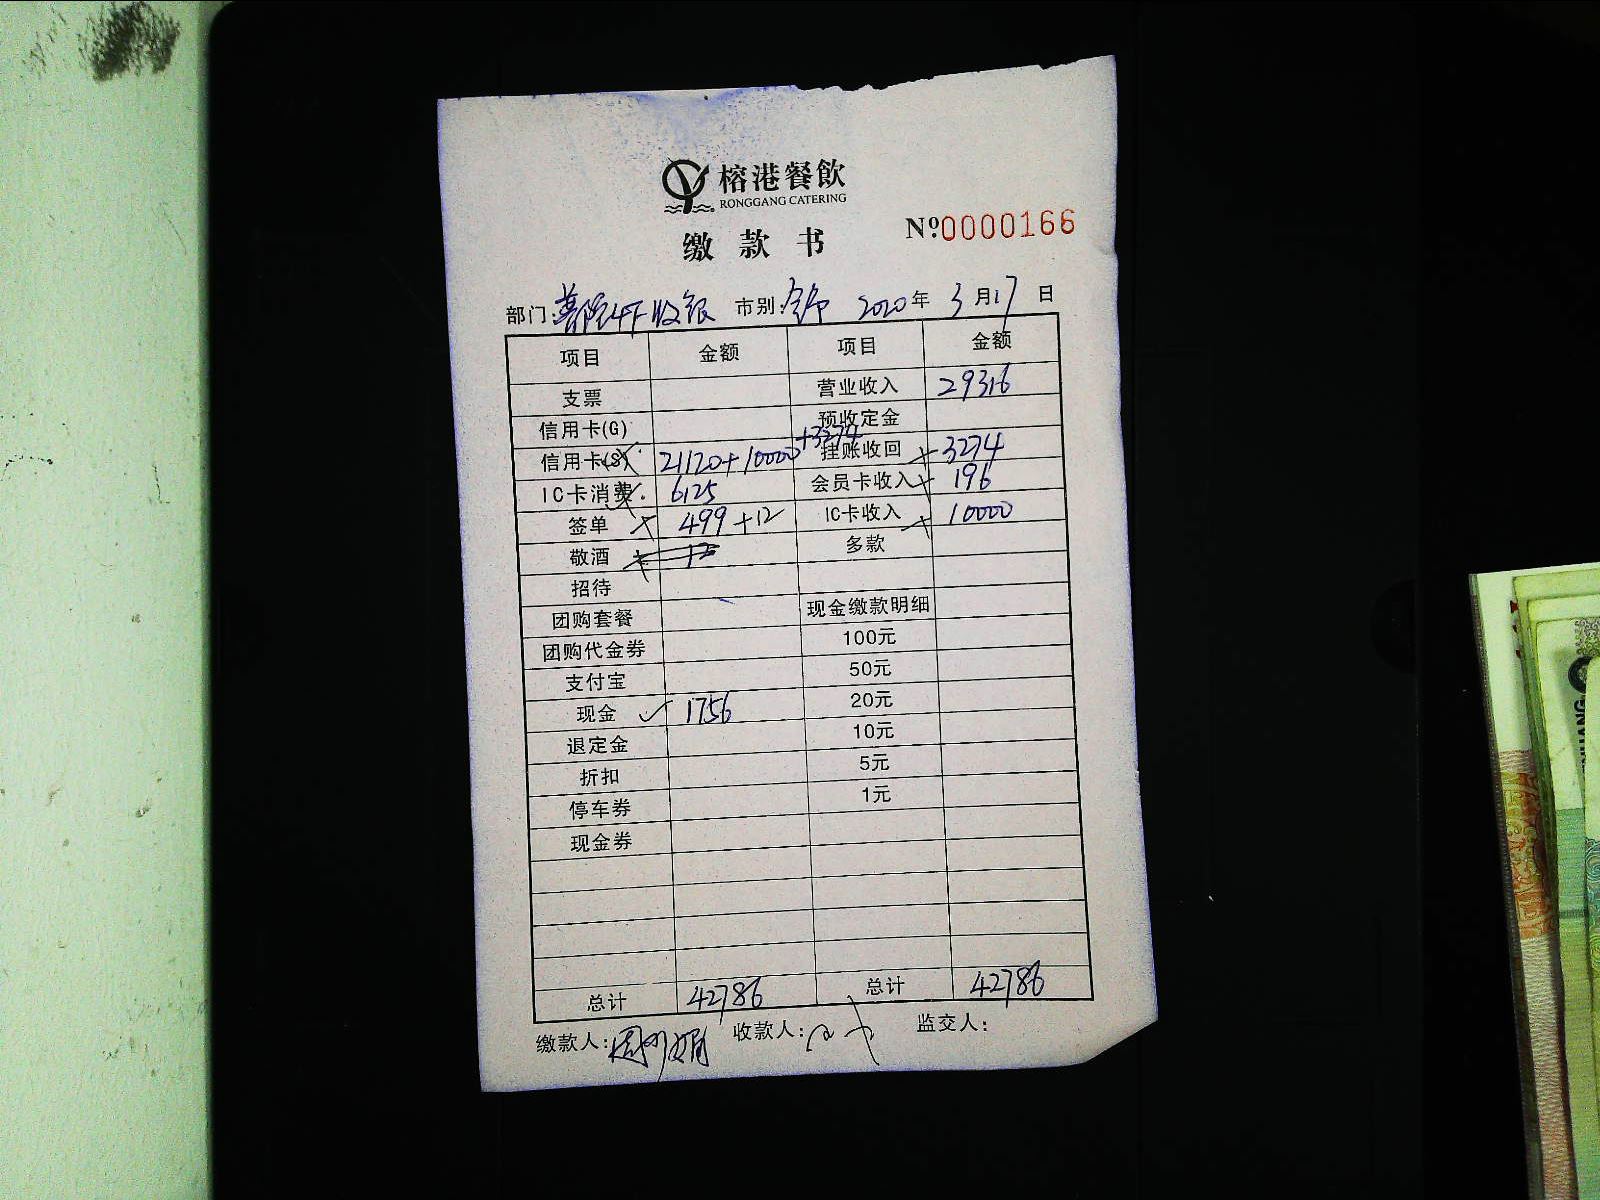 榕港餐飲
RONGGANG CATERING
缴款书
№0000166
部门: 4F收银 市别: 2020年3月17日
项目 金额 项目 金额
支票 营业收入 29316
信用卡(G) 预收定金
信用卡(S) 21120+10000+3274 挂账收回 3274
IC卡消费 6125 会员卡收入 196
签单 499+12 IC卡收入 10000
敬酒 12 多款
招待
团购套餐 现金缴款明细
团购代金券 100元
支付宝 50元
现金 ✓ 1756 20元
退定金 10元
折扣 5元
停车券 1元
现金券
总计 42786 总计 42786
缴款人: 收款人: 监交人:
HUANG